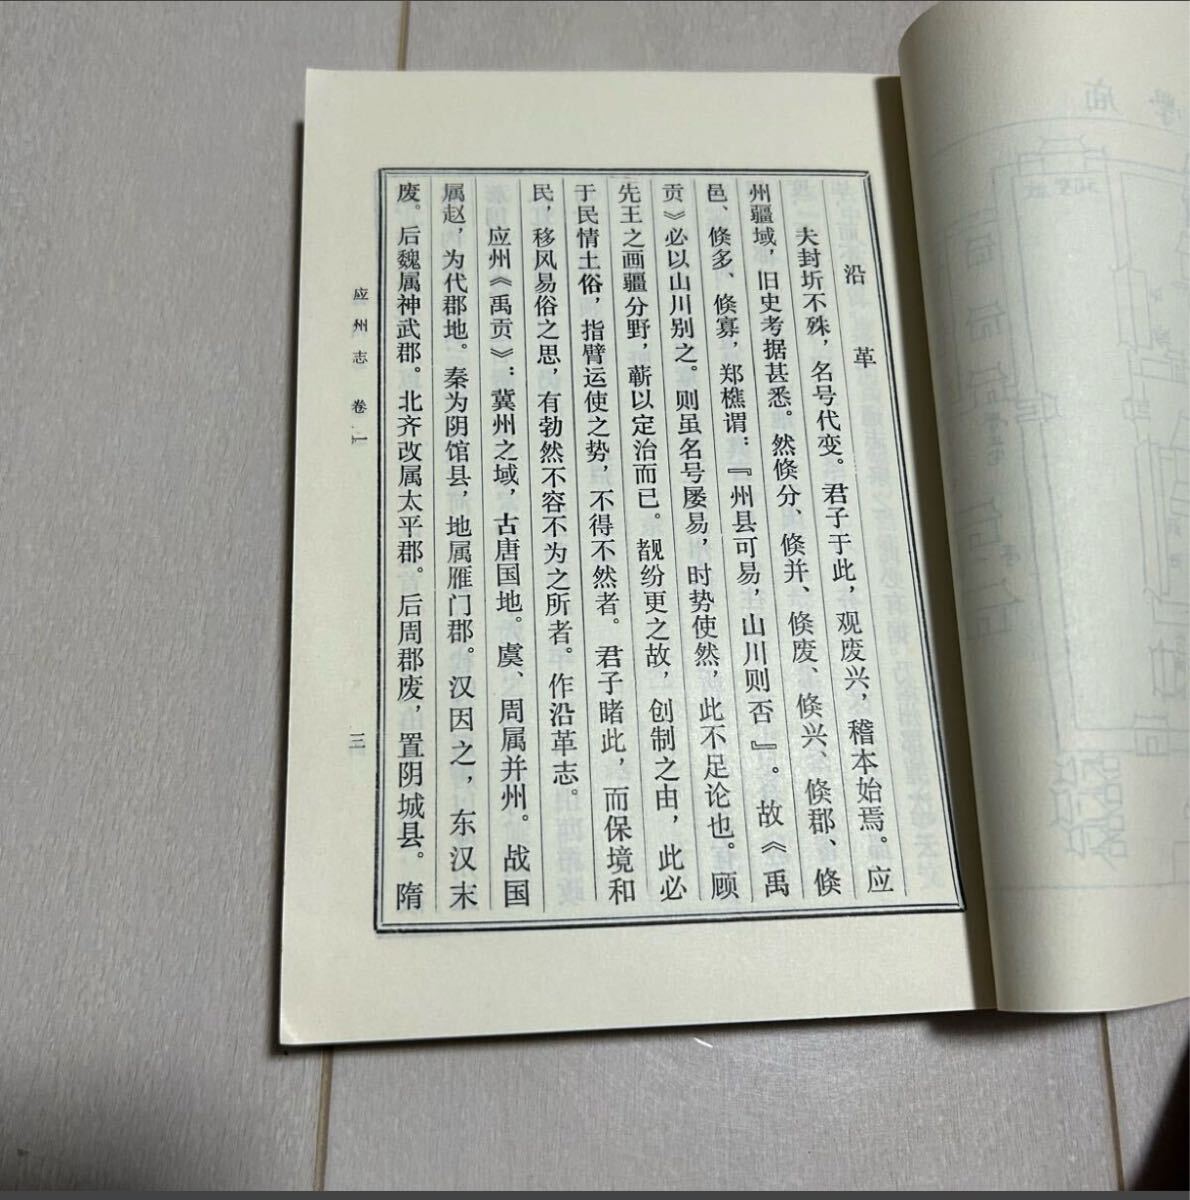 沿革
夫封圻不殊，名号代变。君子于此，观废兴，稽本始焉。应
州疆域，旧史考据甚悉。然倏分、倏并、倏废、倏兴、倏郡、倏
邑、倏多、倏寡，郑樵谓：『州县可易，山川则否』。故《禹
贡》必以山川别之。则虽名号屡易，时势使然，此不足论也。顾
先王之画疆分野，蕲以定治而已。觏纷更之故，创制之由，此必
于民情土俗，指臂运使之势，不得不然者。君子睹此，而保境和
民，移风易俗之思，有勃然不容不为之所者。作沿革志。
应州《禹贡》：冀州之域，古唐国地。虞、周属并州。战国
属赵，为代郡地。秦为阴馆县，地属雁门郡。汉因之，东汉末
废。后魏属神武郡。北齐改属太平郡。后周郡废，置阴城县。隋
应州志 卷一
三